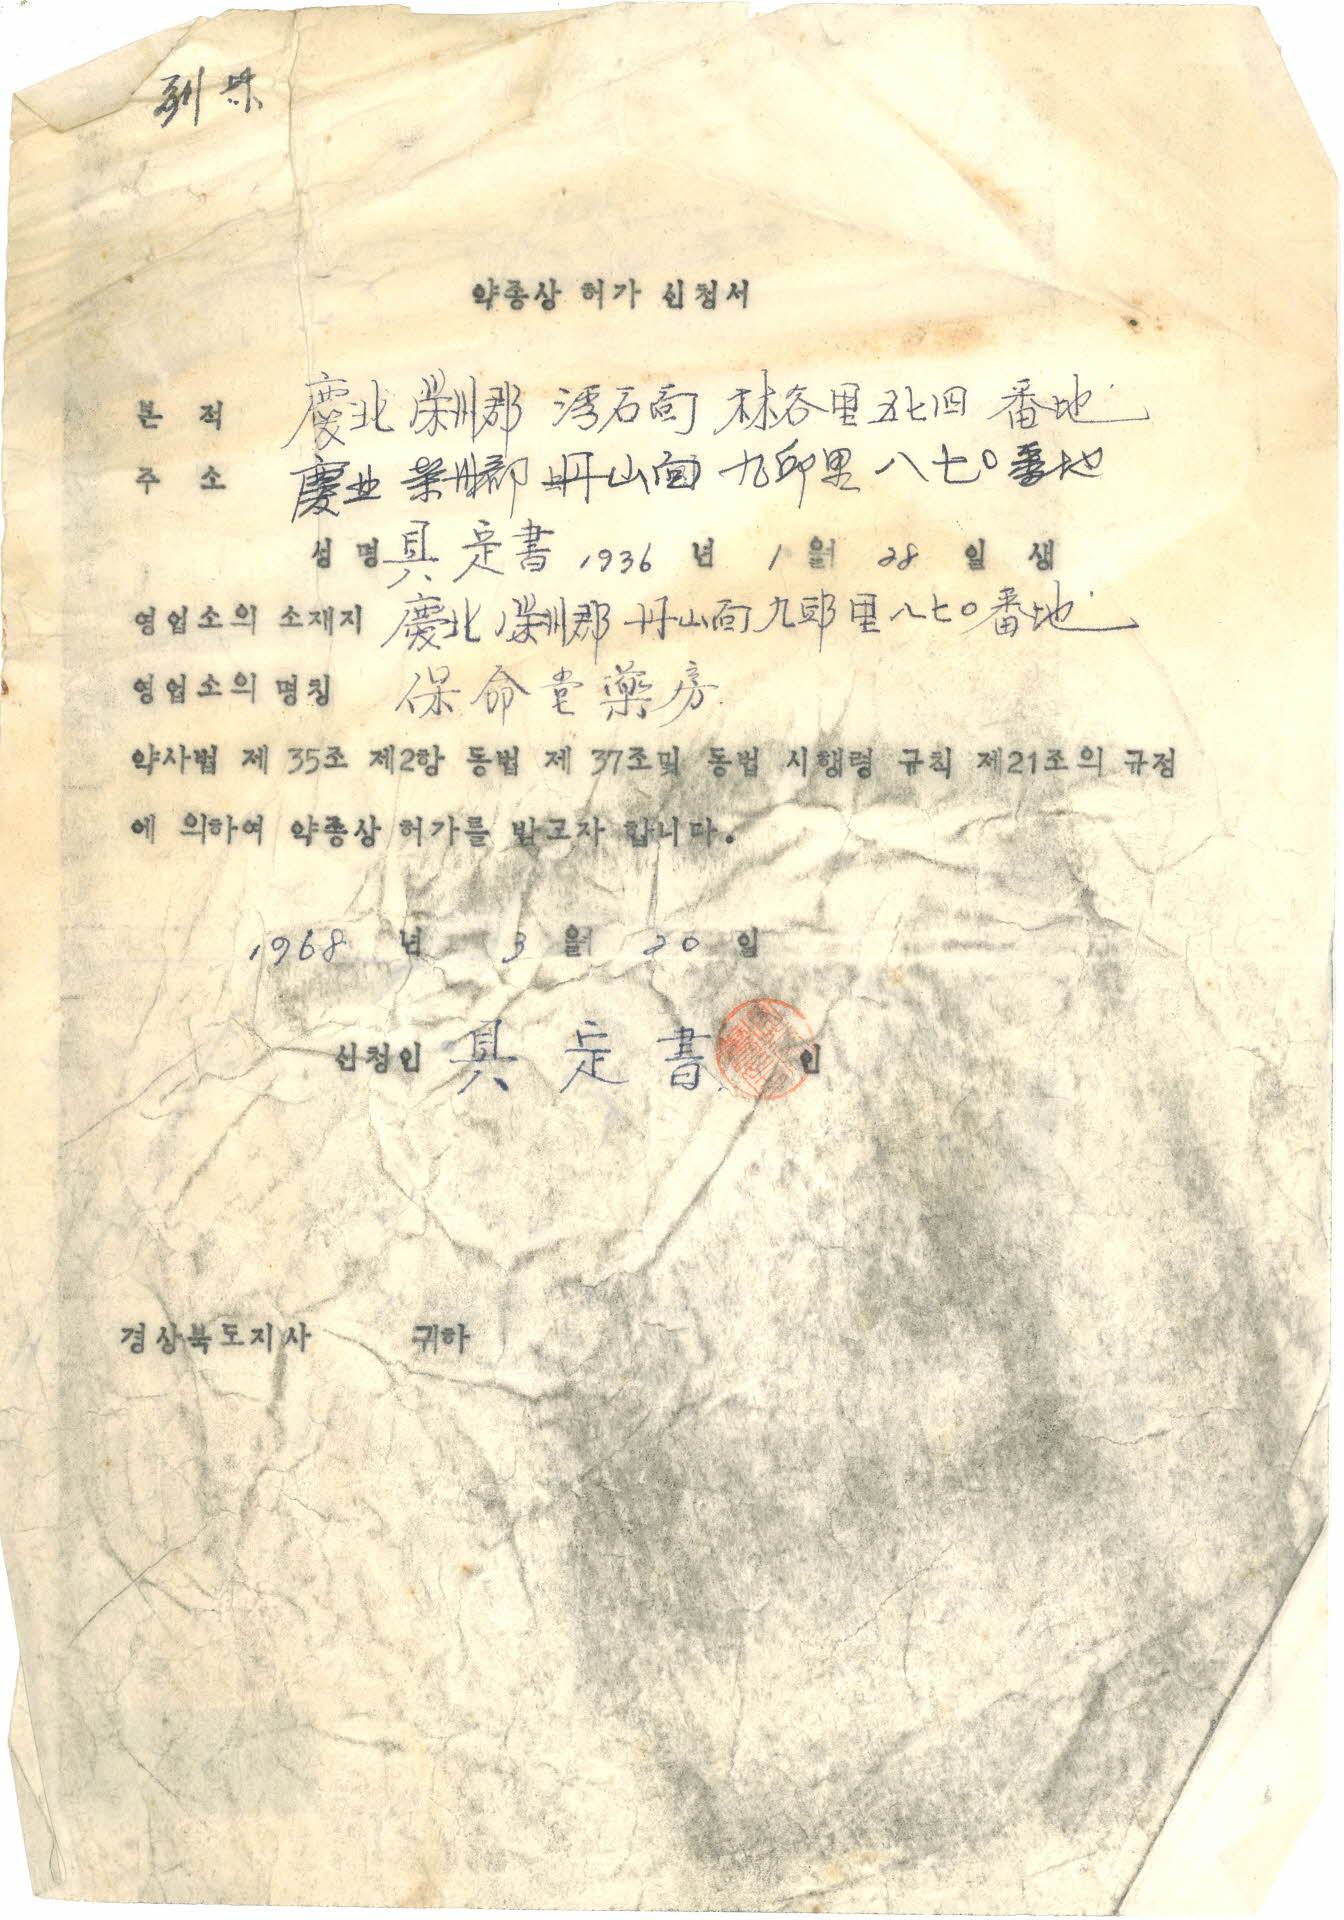 약종상 허가 신청서
본 적 慶北 榮州郡 浮石面 林谷里 五七四 番地
주 소 慶北 榮州郡 丹山面 九邱里 八七〇 番地
성 명 具定書 1936 년 1 월 28 일 생
영업소의 소재지 慶北 榮州郡 丹山面 九邱里 八七〇 番地
영업소의 명칭 保命堂藥房
약사법 제 35조 제2항 동법 제 37조및 동법 시행령 규칙 제21조의 규정
에 의하여 약종상 허가를 받고자 합니다.
1968 년 3 월 20 일
신청인 具定書 인
경상북도지사 귀하